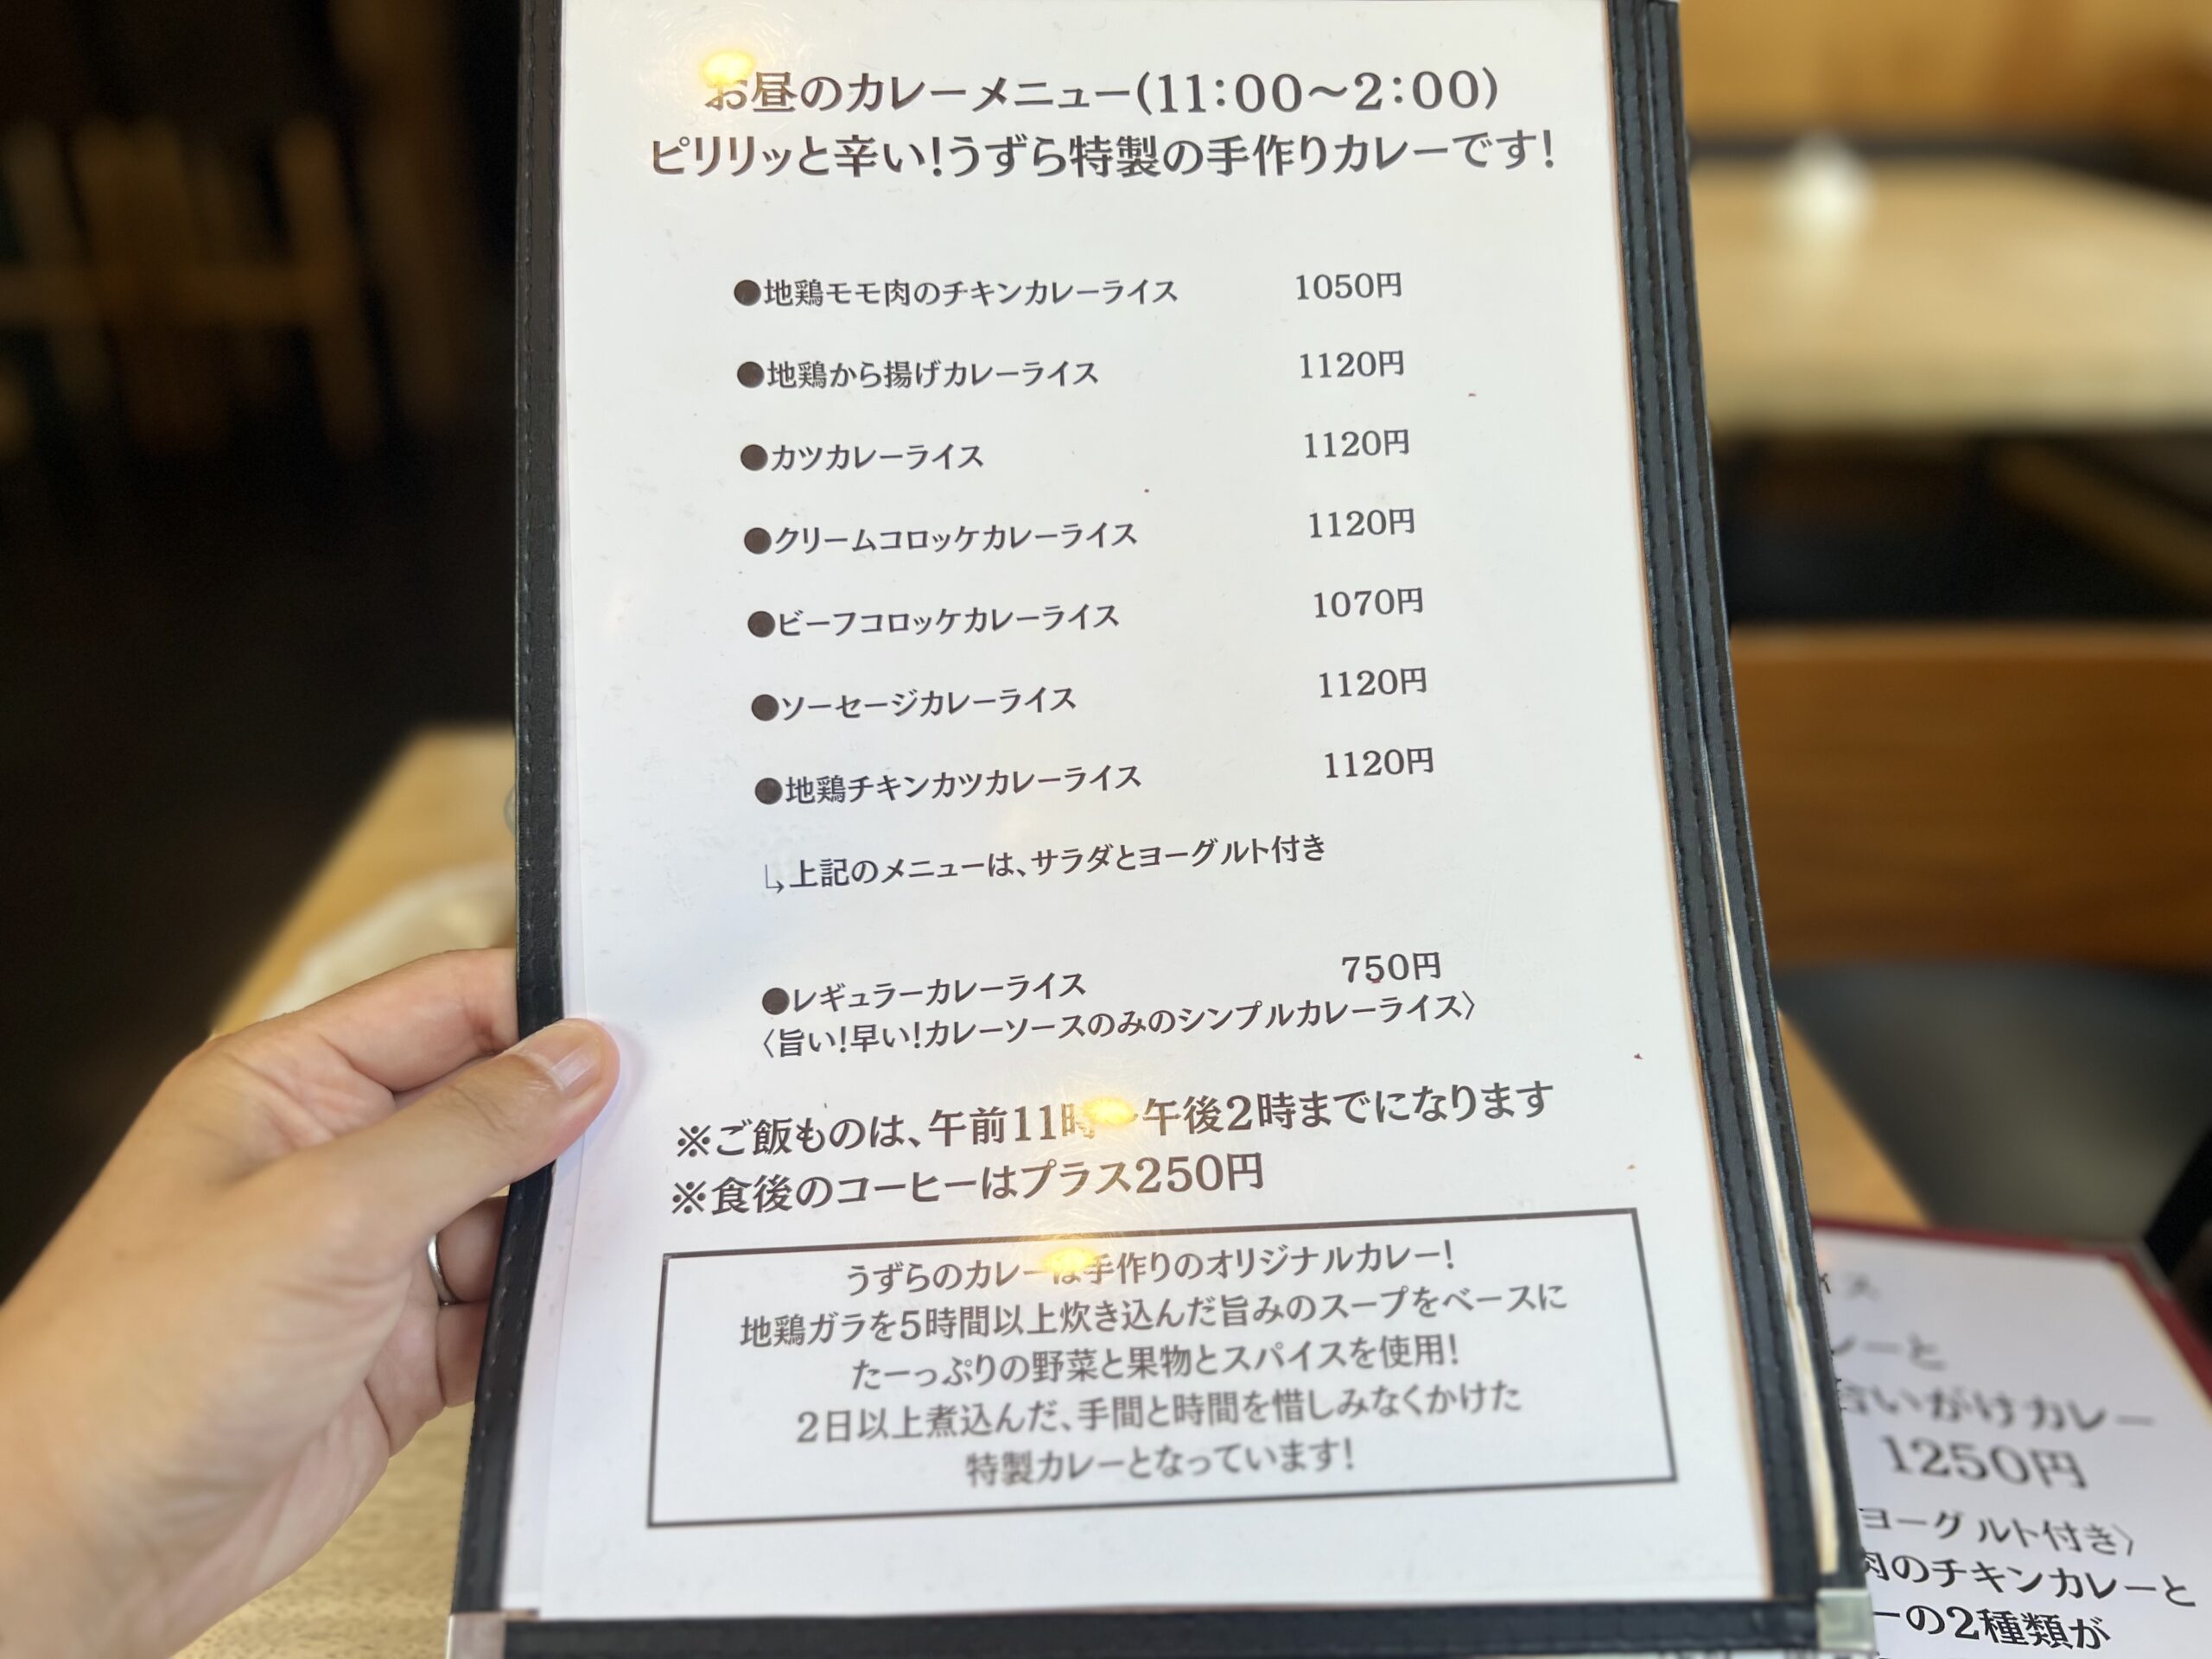 お昼のカレーメニュー(11:00〜2:00)
ピリリッと辛い!うずら特製の手作りカレーです!
●地鶏モモ肉のチキンカレーライス 1050円
●地鶏から揚げカレーライス 1120円
●カツカレーライス 1120円
●クリームコロッケカレーライス 1120円
●ビーフコロッケカレーライス 1070円
●ソーセージカレーライス 1120円
●地鶏チキンカツカレーライス 1120円
↳上記のメニューは、サラダとヨーグルト付き
●レギュラーカレーライス 750円
〈旨い!早い!カレーソースのみのシンプルカレーライス〉
※ご飯ものは、午前11時〜午後2時までになります
※食後のコーヒーはプラス250円
うずらのカレーは手作りのオリジナルカレー!
地鶏ガラを5時間以上炊き込んだ旨みのスープをベースに
たーっぷりの野菜と果物とスパイスを使用!
2日以上煮込んだ、手間と時間を惜しみなくかけた
特製カレーとなっています!
レーと
合いがけカレー
1250円
ヨーグルト付き〉
肉のチキンカレーと
ーの2種類が